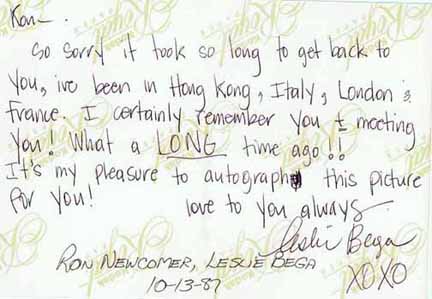 Ron—
So sorry it took so long to get back to
you, ive been in Hong Kong, Italy, London &
France. I certainly remember you + meeting
you! What a LONG time ago!!
It's my pleasure to autograph this picture
for you!
love to you always
Leslie Bega
XOXO
RON NEWCOMER, LESLIE BEGA
10-13-87